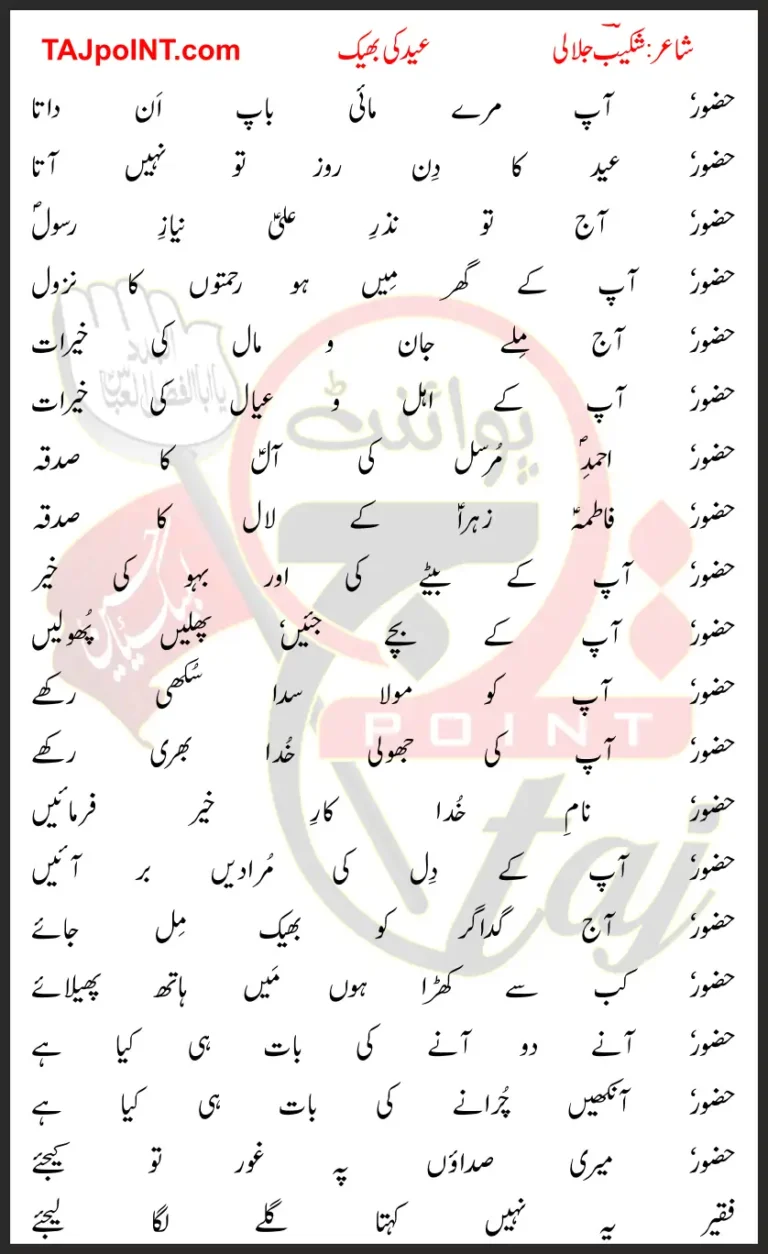 شاعر: شکیبؔ جلالی عید کی بھیک TAJpoINT.com
حضورؐ آپ مرے مائی باپ اَن داتا
حضورؐ عید کا دِن روز تو نہیں آتا
حضورؐ آج تو نذرِ علیؑ نیازِ رسولؐ
حضورؐ آپ کے گھر مِیں ہو رحمتوں کا نزول
حضورؐ آج مِلے جان و مال کی خیرات
حضورؐ آپ کے اہل و عیال کی خیرات
حضورؐ احمدِؐ مُرسَل کی آلؑ کا صدقہ
حضورؐ فاطمہؑ زہراؑ کے لال کا صدقہ
حضورؐ آپ کے بیٹے کی اور بہو کی خیر
حضورؐ آپ کے بچے جئیںؑ پھلیں پُھولیں
حضورؐ آپ کو مولا سدا سُکھی رکھے
حضورؐ آپ کی جھولی خُدا بھری رکھے
حضورؐ نامِ خُدا کارِ خیر فرمائیں
حضورؐ آپ کے دِل کی مُرادیں بر آئیں
حضورؐ آج گداگر کو بھیک مِل جائے
حضورؐ کب سے کھڑا ہوں مَیں ہاتھ پھیلائے
حضورؐ آنے دو آنے کی بات ہی کیا ہے
حضورؐ آنکھیں چُرانے کی بات ہی کیا ہے
حضورؐ میری صداؤں پہ غور تو کیجئے
فقیر یہ نہیں کہتا گلے لگا لیجئے
پوائنٹ
تاج
POINT
taj
لبیک یا حسین